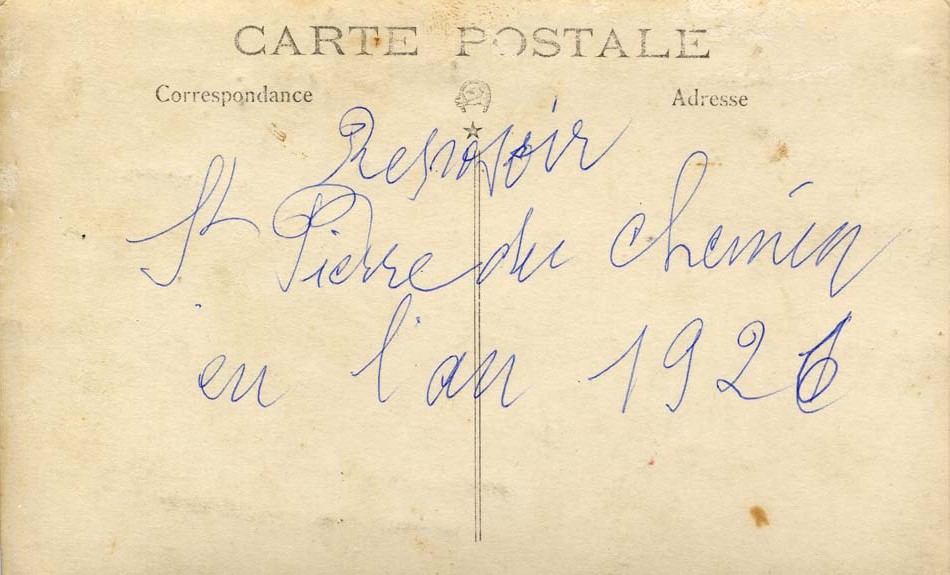 CARTE POSTALE
Correspondance Adresse
Reposoir
St Pierre du Chemin
en l'an 1926